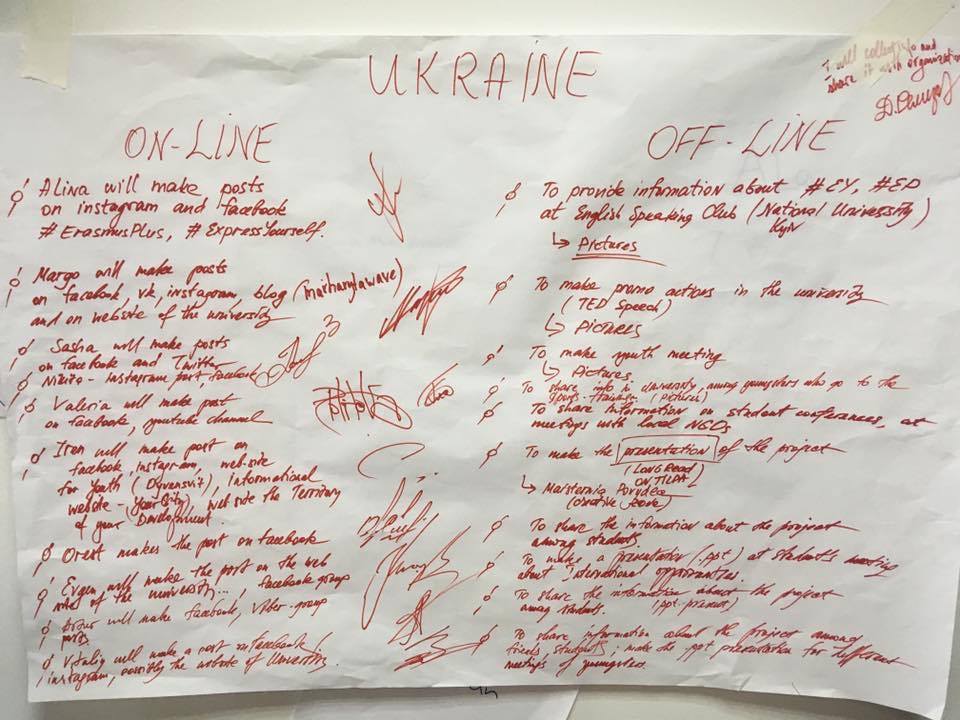 UKRAINE
I will collect info and
share it with organization
ON-LINE
Alina will make posts
on instagram and facebook
#ErasmusPlus, #ExpressYourself.
Margo will make posts
on facebook, vk, instagram, blog
and on website of the university
Sasha will make posts
on facebook and Twitter
Nikita - Instagram post, facebook
Valeria will make post
on facebook, youtube channel
Iren will make post on
facebook, instagram, web-site
for Youth (Dyvensvit), Informational
website - (Your City), web site the Territory
of your Development.
Orest makes the post on facebook
Evgen will make the post on the web
site of the university... facebook group
will make facebook, Viber-group
posts
Vitaliy will make a post on facebook,
instagram, possibly the website of University.
OFF-LINE
To provide information about #EY, #EP
at English Speaking Club (National University)
Kyiv
↳ Pictures
To make promo actions in the university
(TED Speech)
↳ Pictures
To make youth meeting
↳ Pictures
To share info in University, among youngsters who go to the
sports-trainings (pictures)
To share information on student conferences, at
meetings with local NGOs
To make the presentation of the project
(LONG Read
ON TILDA)
↳ Maisternia
To share the information about the project
among students.
To make a presentation (.ppt) at student's meeting
about International opportunities.
To share the information about the project
among students. (ppt-present)
To share information about the project among
friends, students; make the ppt presentation for different
meetings of youngsters.